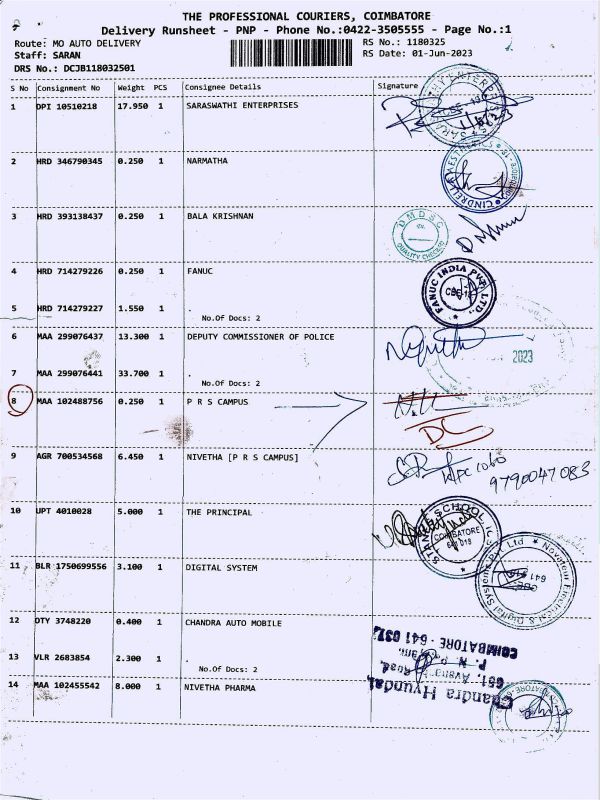 THE PROFESSIONAL COURIERS, COIMBATORE
Delivery Runsheet - PNP - Phone No.:0422-3505555 - Page No.:1
Route: MO AUTO DELIVERY RS No.: 1180325
Staff: SARAN RS Date: 01-Jun-2023
DRS No.: DCJB118032501
S No Consignment No Weight PCS Consignee Details Signature
1 DPI 10510218 17.950 1 SARASWATHI ENTERPRISES
1/6/23
2 HRD 346790345 0.250 1 NARMATHA
CINDRELLA AESTHETICS
3 HRD 393138437 0.250 1 BALA KRISHNAN
DMDSC
QUALITY CHECKED
4 HRD 714279226 0.250 1 FANUC
FANUC INDIA PVT. LTD.,
5 HRD 714279227 1.550 1 .
No.Of Docs: 2
6 MAA 299076437 13.300 1 DEPUTY COMMISSIONER OF POLICE
2023
7 MAA 299076441 33.700 1 .
No.Of Docs: 2
8 MAA 102488756 0.250 1 P R S CAMPUS
DC
9 AGR 700534568 6.450 1 NIVETHA [P R S CAMPUS]
9790047083
10 UPT 4010028 5.000 1 THE PRINCIPAL
SCHOOL
COIMBATORE
11 BLR 1750699556 3.100 1 DIGITAL SYSTEM
Novateur Electrical & Digital Systems Pvt. Ltd
12 OTY 3748220 0.400 1 CHANDRA AUTO MOBILE
13 VLR 2683854 2.300 1 .
No.Of Docs: 2
Chandra Hyundai
Road,
COIMBATORE - 641 037.
14 MAA 102455542 8.000 1 NIVETHA PHARMA